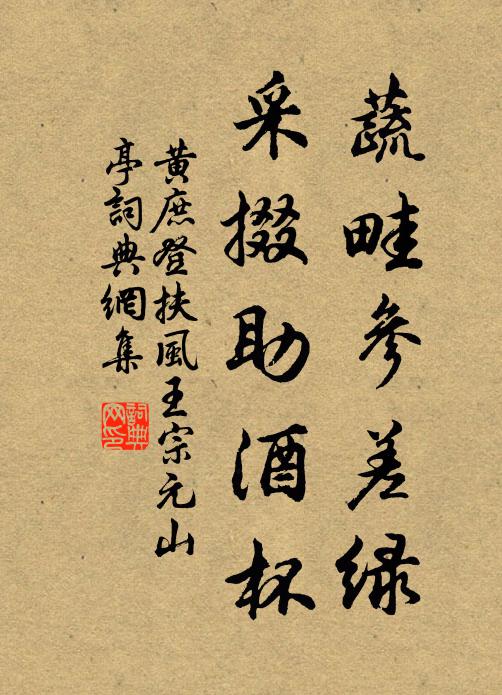 蔬畦參差綠
采掇助酒杯
黃庶登扶風王宗元山
亭詞典網集
詞典
网印